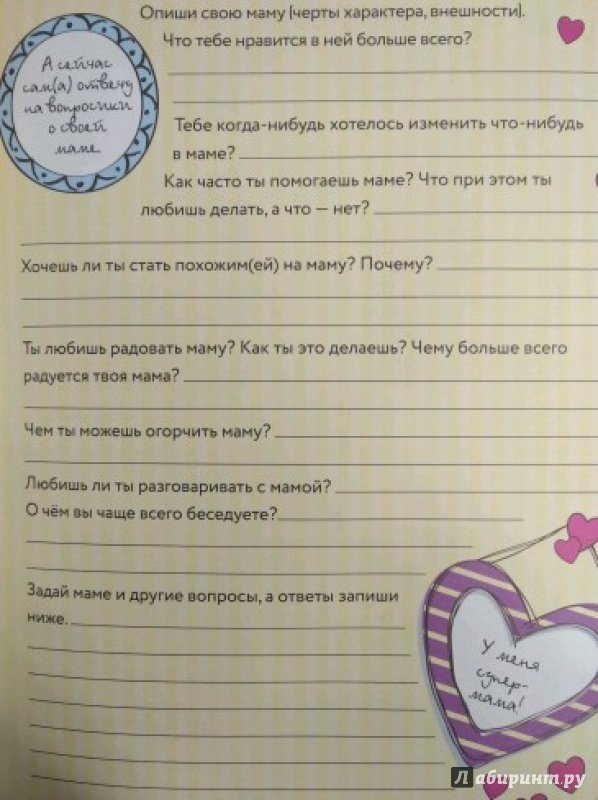 Опиши свою маму (черты характера, внешности).
Что тебе нравится в ней больше всего?
А сейчас
сам(а) отвечу
на вопросики
о своей
маме
Тебе когда-нибудь хотелось изменить что-нибудь
в маме?
Как часто ты помогаешь маме? Что при этом ты
любишь делать, а что — нет?
Хочешь ли ты стать похожим(ей) на маму? Почему?
Ты любишь радовать маму? Как ты это делаешь? Чему больше всего
радуется твоя мама?
Чем ты можешь огорчить маму?
Любишь ли ты разговаривать с мамой?
О чём вы чаще всего беседуете?
Задай маме и другие вопросы, а ответы запиши
ниже.
У меня
супер-
мама!
Лабиринт.ру